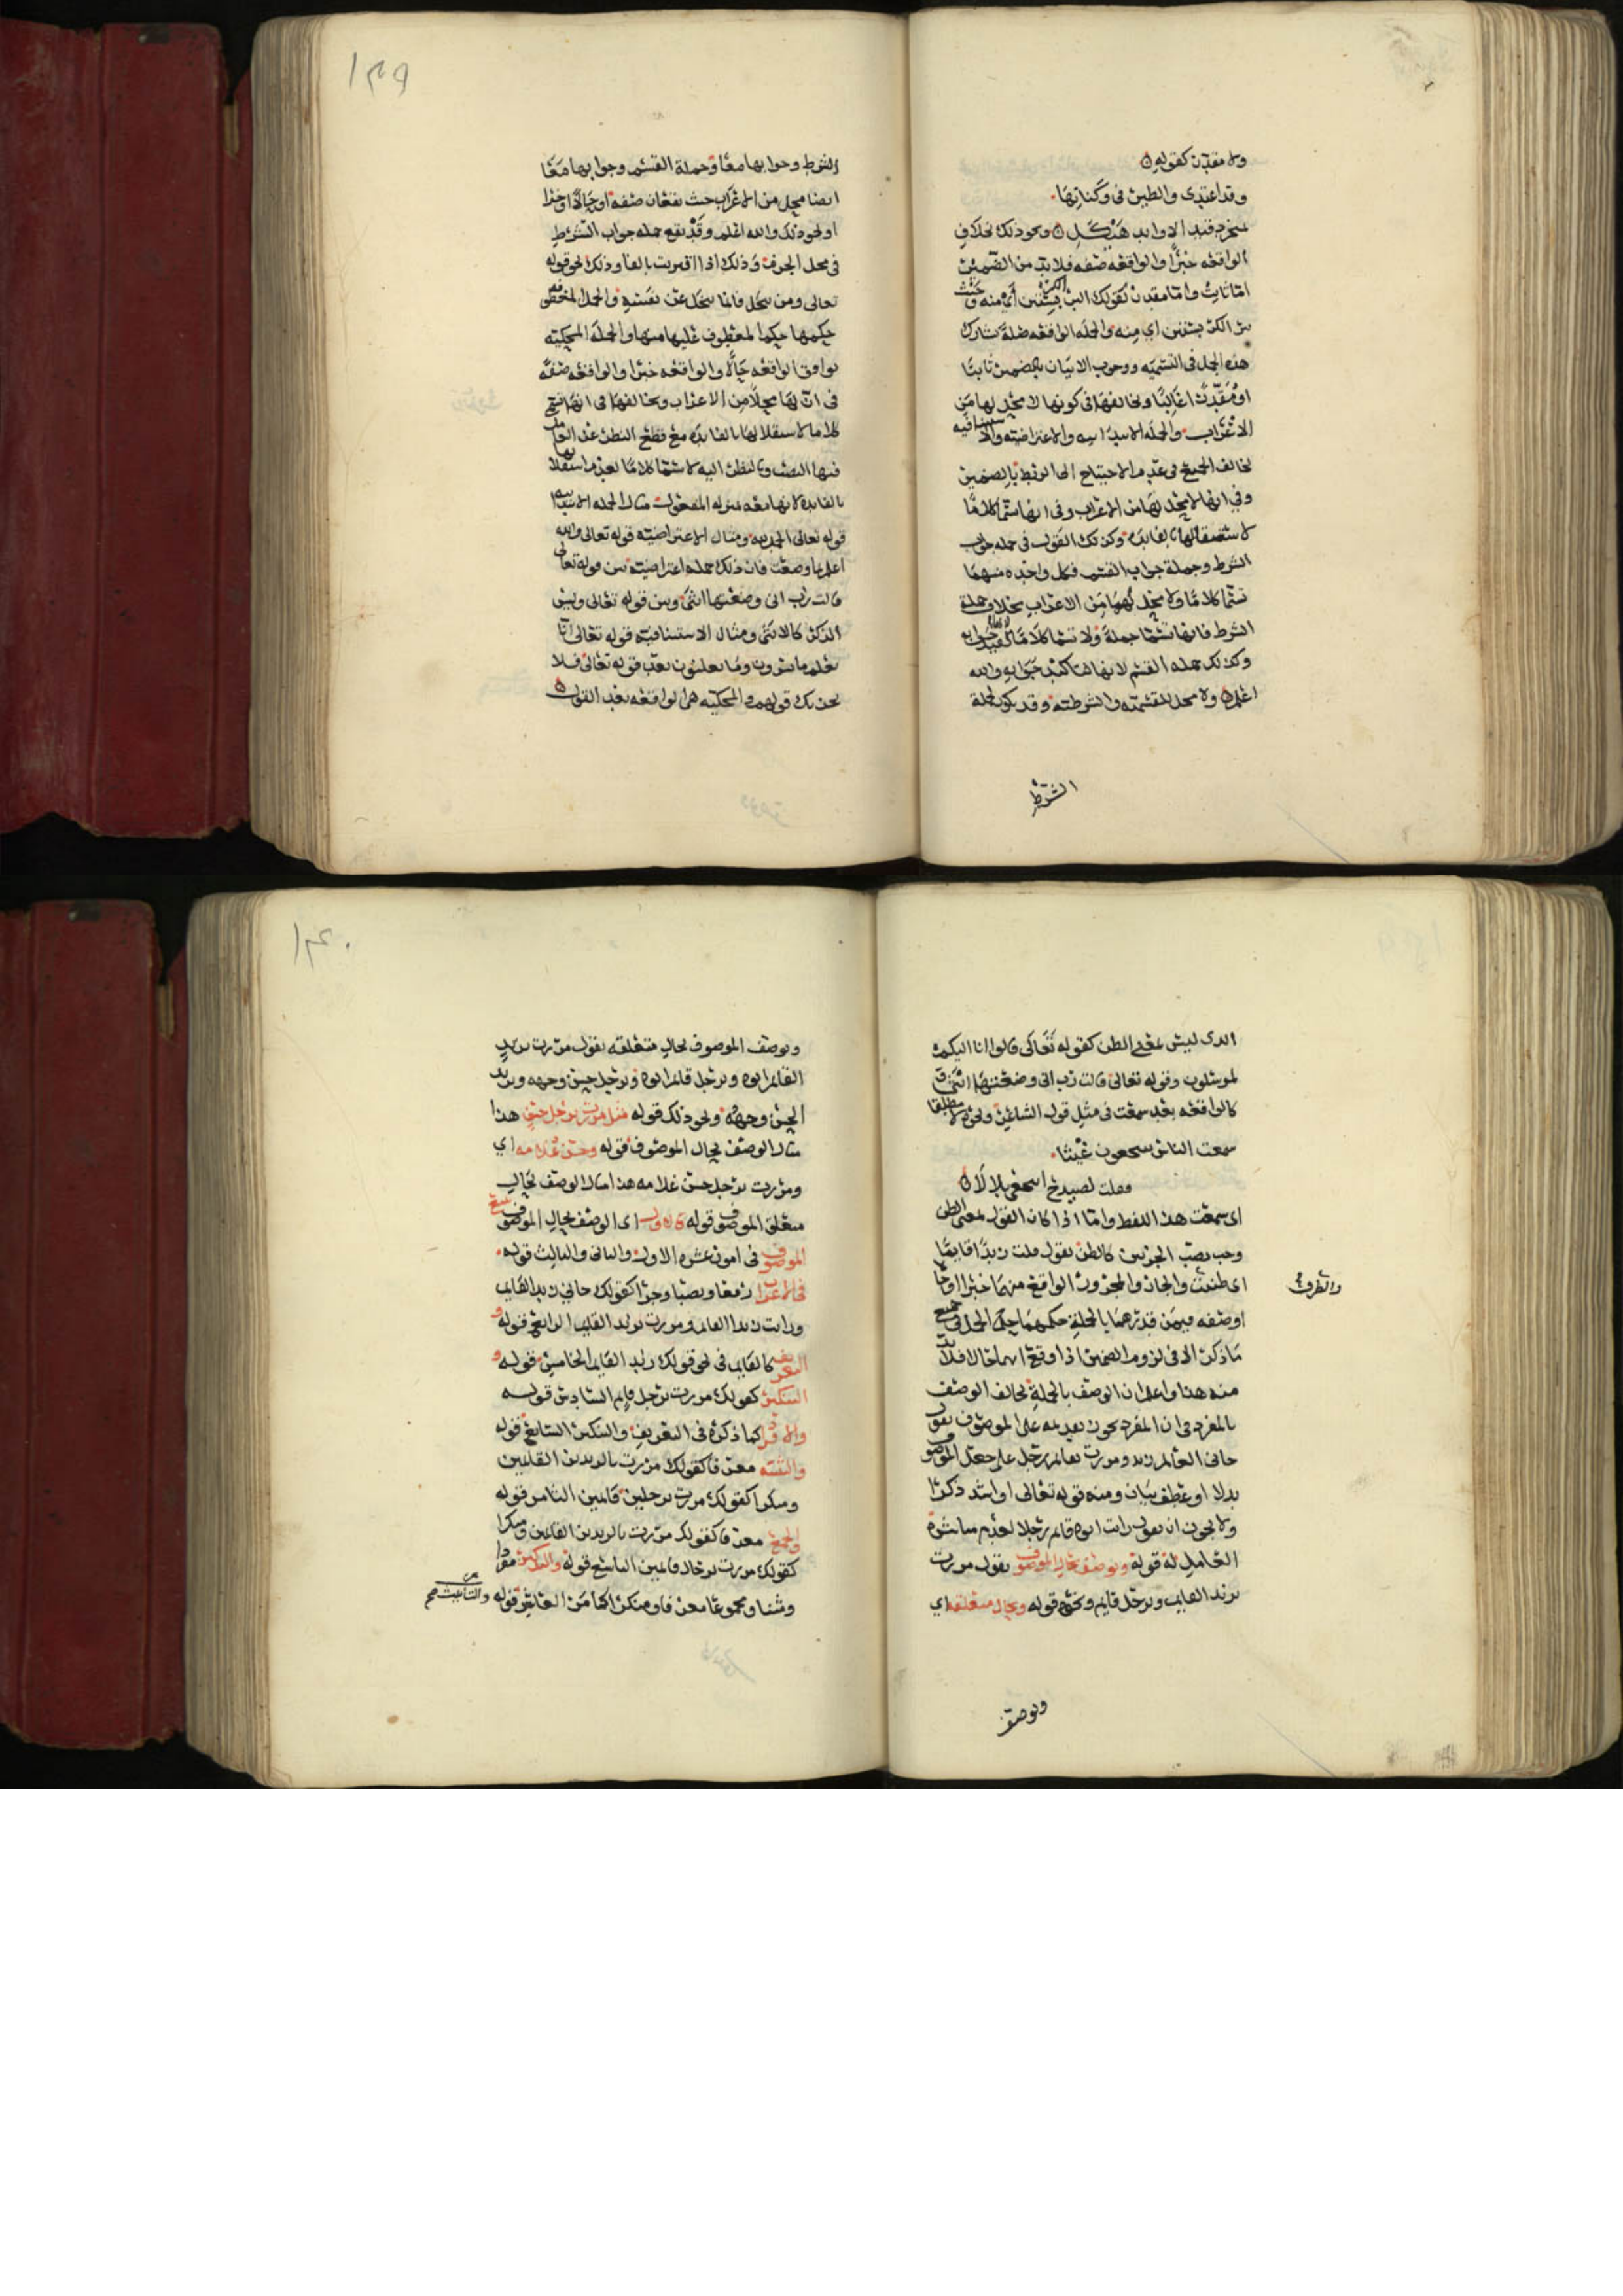 ولا مقدرة كقوله
وقد اغتدي والطير في وكناتها
بمنجرد قيد الاوابد هيكل ونحو ذلك بخلاف
الواقعة خبرا والواقعة صفة فلا بد من الضمير
اما ثابت واما مقدر كقولك البر الكر بستين أي منه وحيث
بر الكر بستين اي منه والجملة الواقعة صلة تشارك
هذه الجمل في التسمية ووجوب الاتيان بالضمير ثابتا
او مقدرا غالبا وتخالفها في كونها لا محل لها من
الاعراب والجملة الابتدائية والاعتراضية والاستئنافية
تخالف الجميع في عدم الاحتياج الى الربط بالضمير
وفي انها لا محل لها من الاعراب وفي انها تسمى كلاما
لاستقلالها بالفايدة وكذلك القول في جملة جواب
الشرط وجملة جواب القسم فكل واحدة منهما
تسمى كلاما ولا محل لهما من الاعراب بخلاف جملة
الشرط فانها تسمى جملة ولا تسمى كلاما لتقييد جوابه
وكذلك جملة القسم لانها تاكيد جوابه والله
اعلم ولا محل للقسمية والشرطية وقد يكون لجملة
الشرط
١٢٩
الشرط وجوابها معا وجملة القسم وجوابها معا
ايضا محل من الاعراب حيث يقعان صفة او حالا او خبرا
او نحو ذلك والله اعلم وقد يقع جملة جواب الشرط
في محل الجزم وذلك اذا اقترنت بالفا وذلك نحو قوله
تعالى ومن يبخل فانما يبخل عن نفسه والجمل المعطوفة
حكمها حكم المعطوف عليها منها والجملة المحكية
توافق الواقعة حالا والواقعة خبرا والواقعة صفة
في ان لها محلا من الاعراب وتخالفها في انها تسمى
كلاما لاستقلالها بالفايدة مع قطع النظر عن العامل
فيها النصب وبالنظر اليه لا تسمى كلاما لعدم استقلالها
بالفايدة لانها معه بمنزلة المفعول مثال الجملة الابتدائية
قوله تعالى الحمد لله ومثال الاعتراضية قوله تعالى والله
اعلم بما وضعت فان ذلك جملة اعتراضية بين قوله تعالى
قالت رب اني وضعتها انثى وبين قوله تعالى وليس
الذكر كالانثى ومثال الاستئنافية قوله تعالى انا
نعلم ما يسرون وما يعلنون بعد قوله تعالى فلا
يحزنك قولهم والمحكية هي الواقعة بعد القول
الذي ليس بمعنى الظن كقوله تعالى قالوا انا اليكم
لمرسلون وقوله تعالى قالت رب اني وضعتها انثى
كالواقعة بعد سمعت في مثل قول الشاعر ونحوه لا مطلقا
سمعت الناس ينتجعون غيثا
فقلت لصيدح انتجعي بلالا
اي سمعت هذا اللفظ واما اذا كان القول بمعنى الظن
وجب نصب الجزئين كالظن تقول قلت زيدا قايما
اي ظننت والجار والمجرور الواقع منهما خبرا او حالا
والظرف
او صفة فيمن قدرهما بالجملة حكمهما حكم الجمل في جميع
ما ذكر الا في لزوم الضمير اذا وقع ايهما حالا فلا بد
منه هذا واعلم ان الوصف بالجملة يخالف الوصف
بالمفرد في ان المفرد يجوز تقديمه على الموصوف تقول
جاني العالم زيد ومررت بعالم رجل على جعل الموصوف
بدلا او عطف بيان ومنه قوله تعالى او اشد ذكرا
ولا يجوز ان تقول رايت ابوه قايم رجلا لعدم مباشرة
العامل له قوله وتوصف بحال الموصوف تقول مررت
بزيد القايم وبرجل قايم ونحوه قوله وبحال متعلقه اي
وتوصف
١٣٠
وتوصف الموصوف بحال متعلقه تقول مررت بزيد
القايم ابوه وبرجل قايم ابوه وبرجل حسن وجهه وبزيد
الحسن وجهه ونحو ذلك قوله مثل مررت برجل حسن هذا
مثال الوصف بحال الموصوف قوله وحسن غلامه اي
ومررت برجل حسن غلامه هذا مثال الوصف بحال
متعلق الموصوف قوله فالاول اي الوصف بحال الموصوف يتبع
الموصوف في امور عشرة الاول والثاني والثالث قوله
في الاعراب رفعا ونصبا وجرا كقولك جاني زيد القايم
ورايت زيدا القايم ومررت بزيد القايم الرابع قوله و
التعريف كالقايم في نحو قولك زيد القايم الخامس قوله و
التنكير كقولك مررت برجل قايم السادس قوله
والافراد كما ذكره في التعريف والتنكير السابع قوله
والتثنية معرفا كقولك مررت بالزيدين القايمين
ومنكرا كقولك مررت برجلين قايمين الثامن قوله
والجمع معرفا كقولك مررت بالزيدين القايمين ومنكرا
كقولك مررت برجال قايمين التاسع قوله والتذكير مفردا
ومثنا ومجموعا معرفا ومنكرا كما مر العاشر قوله والتانيث صح